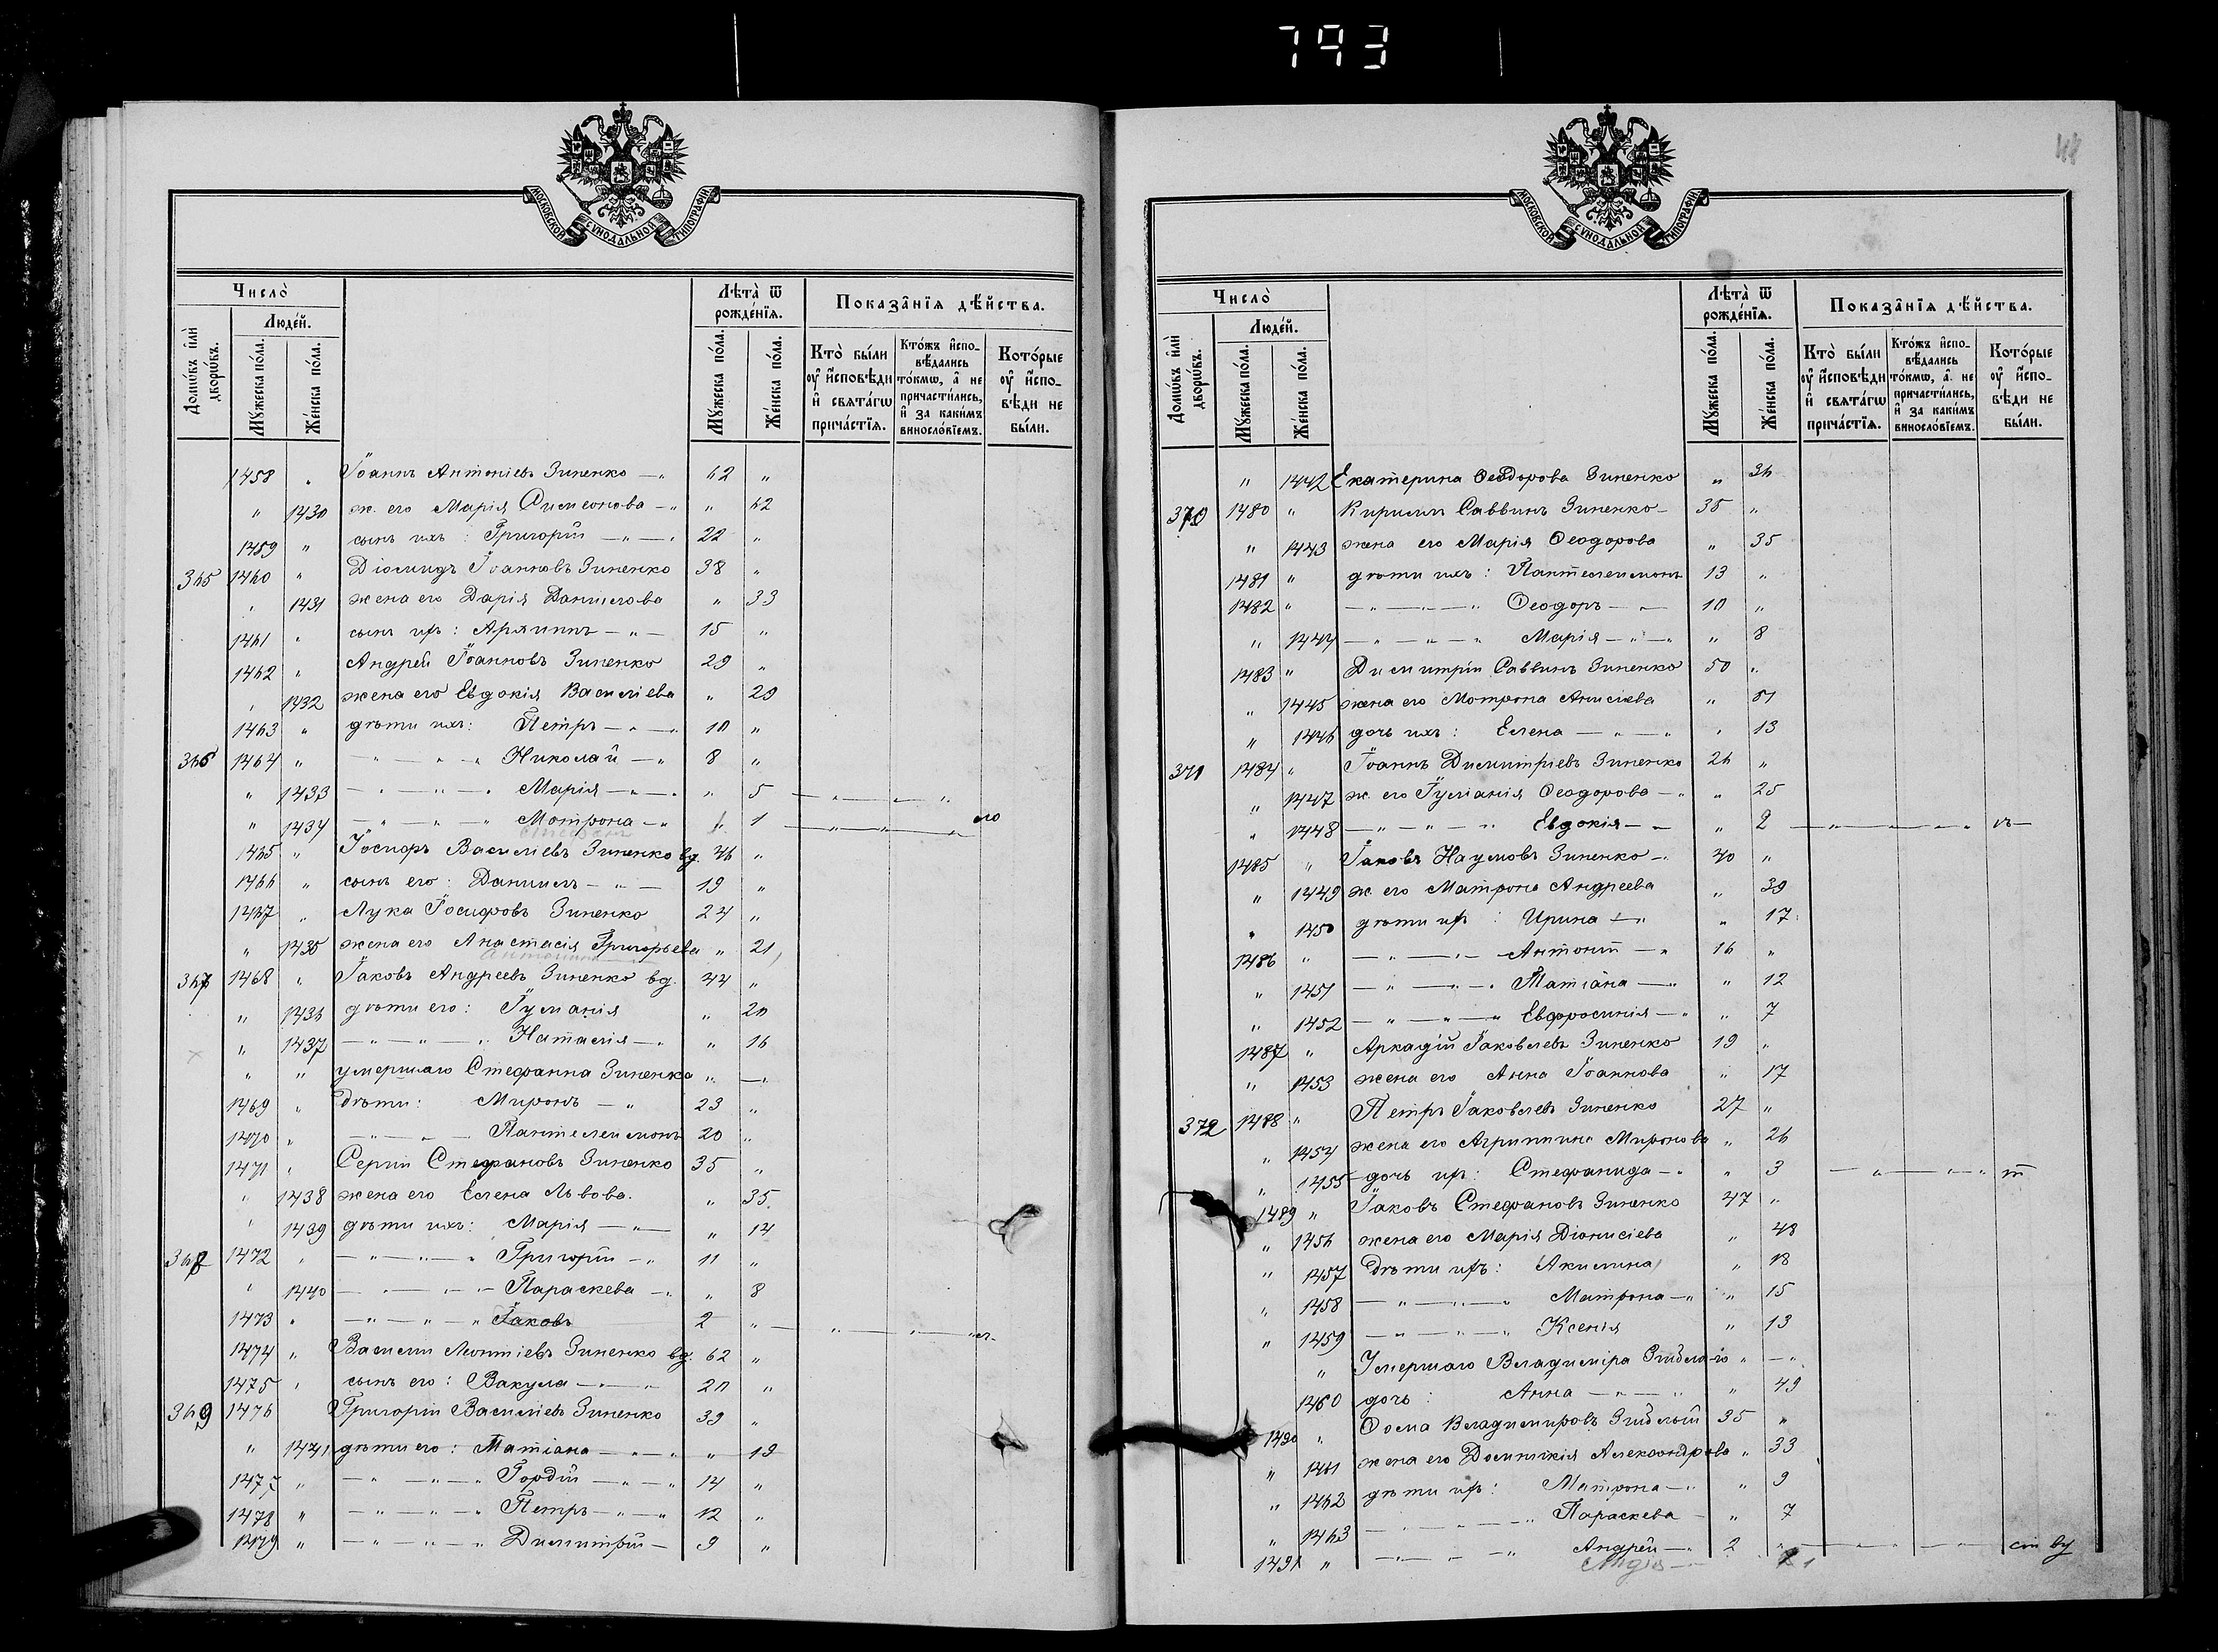 793
МОСКОВСКОЙ СУНОДАЛЬНОЙ ТИПОГРАФІИ.
Число̀
Люде́й.
Домѡ́въ и҆лѝ дворѡ́въ.
Мꙋ́жеска по́ла.
Же́нска по́ла.
Лѣ́та ѿ рожде́нїѧ.
Мꙋ́жеска по́ла.
Же́нска по́ла.
Показа̂нїѧ дѣ́йства.
Кто̀ бы́ли оу҆ и҆сповѣди и҆ свѧта́гѡ прича́стїѧ.
Кто́жъ и҆спо-вѣ́дались то́кмѡ, а҆ не причасти́лись, и҆ за каки́мъ винословїемъ.
Кото́рые оу҆ и҆спо-вѣди не бы́ли.
1458 „ Іоаннъ Антоніевъ Зиненко — „ 62 „
„ 1430 ж. его Марія Симеонова — „ „ 62
1459 „ сынъ ихъ: Григорій — „ — „ 22 „
365 1460 „ Діомидъ Іоанновъ Зиненко 38 „
„ 1431 жена его Дарія Даніилова „ 33
1461 „ сынъ ихъ: Архиппъ — „ — 15 „
1462 „ Андрей Іоанновъ Зиненко 29 „
„ 1432 жена его Евдокія Василіева „ 29
1463 „ дѣти ихъ: Петръ — „ — „ 10 „
366 1464 „ — „ — „ — „ Николай — „ 8 „
„ 1433 — „ — „ — „ Марія — „ — „ „ 5 — „ — „ — „
„ 1434 — „ — „ — „ Мотрона — „ „ 1 — „ — „ —
1465 „ Іосифъ Василіевъ Зиненко вд. 46 „
1466 „ сынъ его: Даніилъ — „ — 19 „
1467 „ Лука Іосифовъ Зиненко 24 „
„ 1435 жена его Анастасія Григорьева „ 21
367 1468 „ Іаковъ Андреевъ Зиненко вд. 44 „
„ 1436 дѣти его: Іуліанія „ 20
„ 1437 — „ — „ — „ Наталія — „ „ 16
„ „ умершаго Стефанна Зиненка „ — „
1469 „ Дѣти: Миронъ — „ 23 „
1470 „ — „ — „ — Пантелеимонъ 20 „
1471 „ Сергій Стефановъ Зиненко 35 „
„ 1438 жена его Елена Львова. „ 35.
„ 1439 дѣти ихъ: Марія — „ — „ 14
368 1472 „ — „ — „ — „ Григорій — „ 11 „
„ 1440 — „ — „ — Параскева — „ „ 8
1473 „ — „ — „ — „ Іаковъ 2 „ — „ — „ —
1474 „ Василій Леонтіевъ Зиненко вд. 62 „
1475 „ сынъ его: Вакула — „ — „ 20 „
369 1476 Григорій Василіевъ Зиненко 39 „
„ 1441 дѣти его: Татіана — „ — „ „ 19
1477 „ — „ — „ — „ Гордій — „ — „ 14 „
1478 „ — „ — „ — „ Петръ — „ — „ 12 „
1479 „ — „ — „ — „ Димитрій — 9 „
МОСКОВСКОЙ СУНОДАЛЬНОЙ ТИПОГРАФІИ.
48
Число̀
Люде́й.
Домѡ́въ и҆лѝ дворѡ́въ.
Мꙋ́жеска по́ла.
Же́нска по́ла.
Лѣ́та ѿ рожде́нїѧ.
Мꙋ́жеска по́ла.
Же́нска по́ла.
Показа̂нїѧ дѣ́йства.
Кто̀ бы́ли оу҆ и҆сповѣди и҆ свѧта́гѡ прича́стїѧ.
Кто́жъ и҆спо-вѣ́дались то́кмѡ, а҆ не причасти́лись, и҆ за каки́мъ винословїемъ.
Кото́рые оу҆ и҆спо-вѣди не бы́ли.
„ 1442 Екатерина Ѳеодорова Зиненко „ 36
370 1480 „ Кириллъ Саввинъ Зиненко — 35 „
„ 1443 жена его Марія Ѳеодорова „ 35
1481 „ дѣти ихъ: Пантелеимонъ 13 „
1482 „ — „ — „ — „ Ѳеодоръ — „ — 10 „
„ 1444 — „ — „ — „ Марія — „ — „ „ 8
1483 „ Димитрій Саввинъ Зиненко 50 „
„ 1445 жена его Мотрона Анисіева „ 51
„ 1446 дочь ихъ: Елена — „ — „ „ 13
371 1484 „ Іоаннъ Димитріевъ Зиненко 26 „
„ 1447 ж. его Іуліанія Ѳеодорова — „ „ 25
„ 1448 — „ — „ — „ Евдокія — „ „ 2 — „ — „ — „
1485 „ Іаковъ Наумовъ Зиненко — „ 40 „
„ 1449 ж его Матрона Андреева „ 39
„ 1450 дѣти ихъ: Ирина — „ „ 17
1486 „ — „ — „ — Антоній — „ 16 „
„ 1451 — „ — „ — „ Татіана — „ „ 12
„ 1452 — „ — „ — „ Евфросинія — „ „ 7
1487 „ Аркадій Іаковлевъ Зиненко 19 „
„ 1453 жена его Анна Іоаннова „ 17
372 1488 „ Петръ Іаковлевъ Зиненко 27 „
„ 1454 жена его Агриппина Миронова „ 26
„ 1455 дочь ихъ: Стефанида — „ „ 3 — „ — „ — „
1489 „ Іаковъ Стефановъ Зиненко 47 „
„ 1456 жена его Марія Діонисіева „ 48
„ 1457 Дѣти ихъ: Акилина „ 18
„ 1458 — „ — „ — „ Матрона — „ „ 15
„ 1459 — „ — „ — „ Ксенія „ 13
„ Умершаго Владиміра „ — „
1460 дочь: Анна — „ — „ „ 49
1490 „ Ѳома Владимировъ 35 „
„ 1461 жена его Домникія Александрова „ 33
„ 1462 дѣти ихъ: Матрона — „ „ 9
„ 1463 — „ — „ — „ Параскева — „ 7
1491 „ — „ — „ — „ Андрей — „ 2 „ — „ — „ —